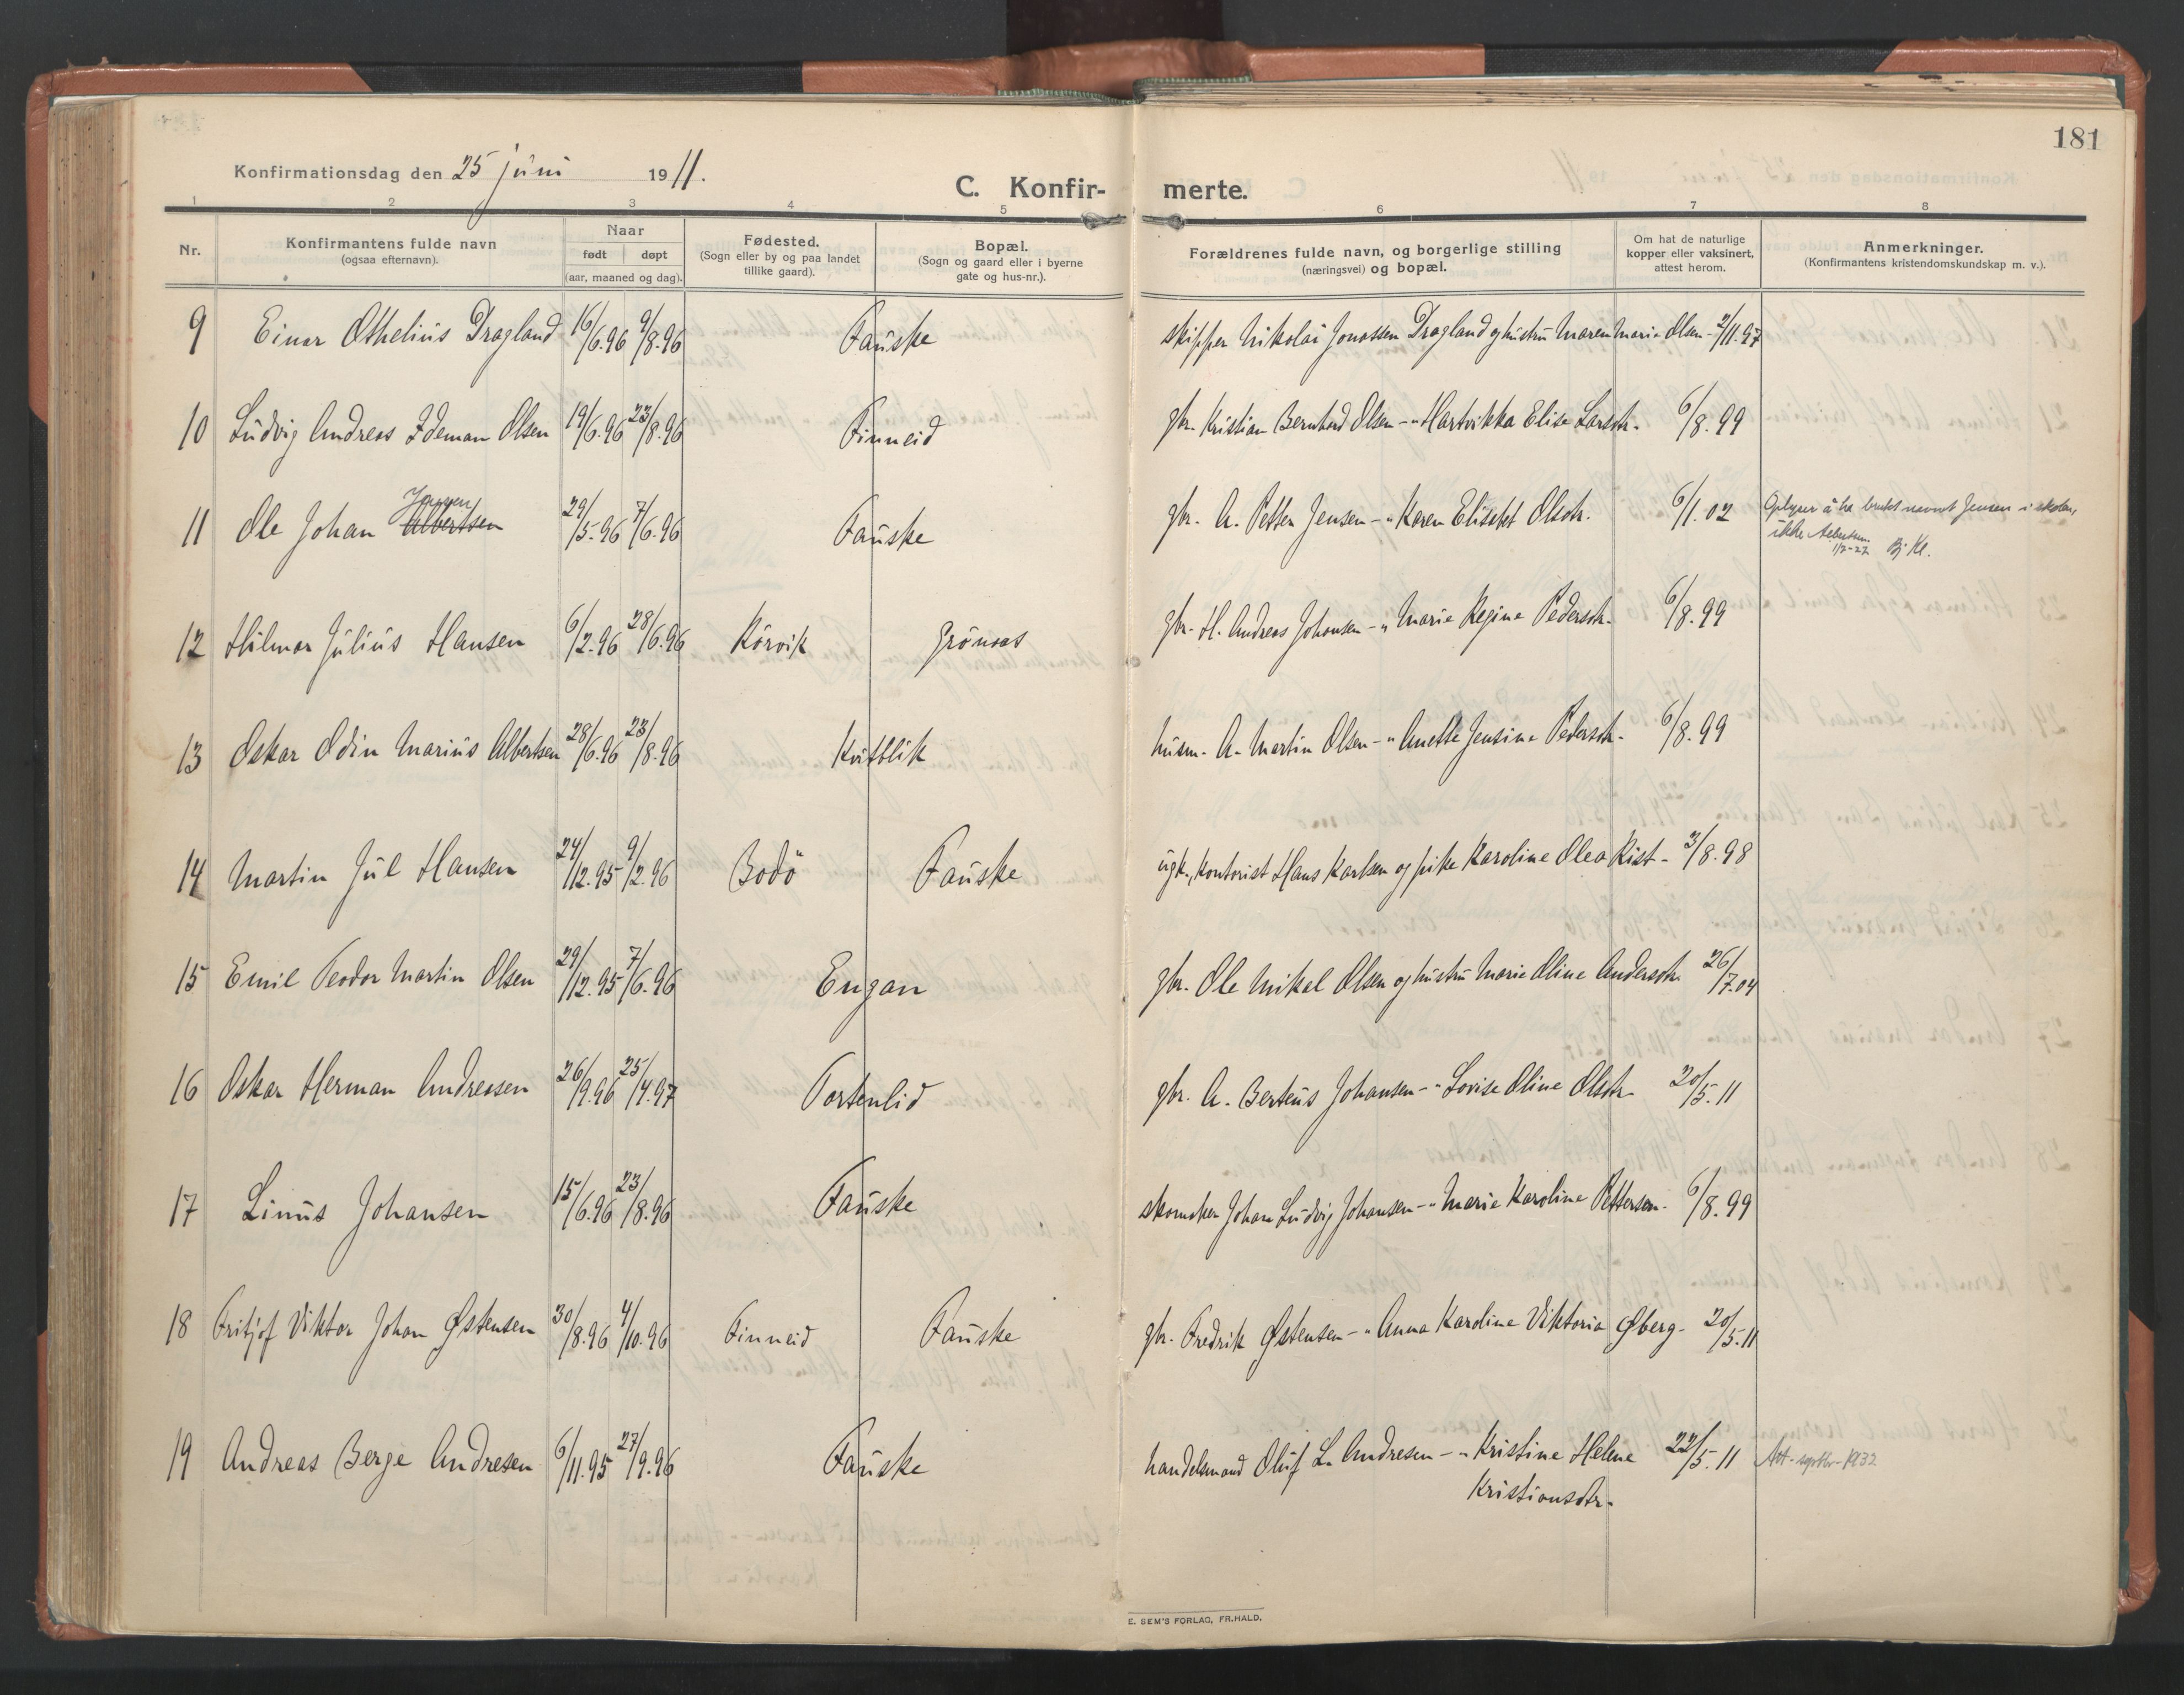 181
Konfirmationsdag den 25 juni 1911.
C. Konfir- merte.
1 2 3 4 5 6 7 8
Nr. Konfirmantens fulde navn (ogsaa efternavn). Naar født døpt (aar, maaned og dag). Fødested. (Sogn eller by og paa landet tillike gaard). Bopæl. (Sogn og gaard eller i byerne gate og hus-nr.). Forældrenes fulde navn, og borgerlige stilling (næringsvei) og bopæl. Om hat de naturlige kopper eller vaksinert, attest herom. Anmerkninger. (Konfirmantens kristendomskundskap m. v.).
9 Einar Othelius Dragland 16/6.96 9/8.96 Fauske skipper Nikolai Jonassen Dragland og hustru Maren Marie Olsen - 2/11.97
10 Ludvig Andreas Ideman Olsen 19/6.96 23/8.96 Finneid gbr. Kristian Bernhard Olsen - " Hartvikka Elise Larsdtr. 6/8.99
11 Ole Johan Albertsen Jensen 29/5.96 7/6.96 Fauske gbr. A. Petter Jensen - " Karen Elisabet Olsdtr. 6/1.02 Oplyser å ha brukt navnet Jensen i skolen,
ikke Albertsen. 1/2-27 Bj. Kl.
12 Hilmar Julius Hansen 6/2.96 28/6.96 Körvik Grönaas gbr. H. Andreas Johansen - " Marie Regine Pedersdtr. 6/8.99
13 Oskar Odin Marius Albertsen 28/6.96 23/8.96 Kvitblik husm. A. Martin Olsen - " Anette Jensine Pedersdtr. 6/8.99
14 Martin Jul Hansen 24/12.95 9/2.96 Bodö Fauske ugk., kontorist Hans Karlsen og pike Karoline Olea Kist - 3/8.98
15 Emil Teodor Martin Olsen 29/12.95 7/6.96 Engan gbr. Ole Mikal Olsen og hustru Marie Oline Andersdtr. 26/7.04
16 Oskar Herman Andreasen 26/9.96 25/4.97 Tortenlid gbr. A. Berteus Johansen - " Lovise Oline Olsdtr. 20/5.11
17 Linus Johansen 15/6.96 23/8.96 Fauske skomaker Johan Ludvig Johansen - " Marie Karoline Pettersen. 6/8.99
18 Fritjof Viktor Johan Østensen 30/8.96 4/10.96 Finneid Fauske gbr. Fredrik Østensen - " Anna Karoline Viktoria Øberg - 20/5.11
19 Andreas Berge Andresen 6/11.95 27/9.96 Fauske handelsmand Oluf L. Andresen - " Kristine Helene 22/5.11 Att. septbr. 1932
Kristiansdtr.
E. SEM'S FORLAG, FR.HALD.